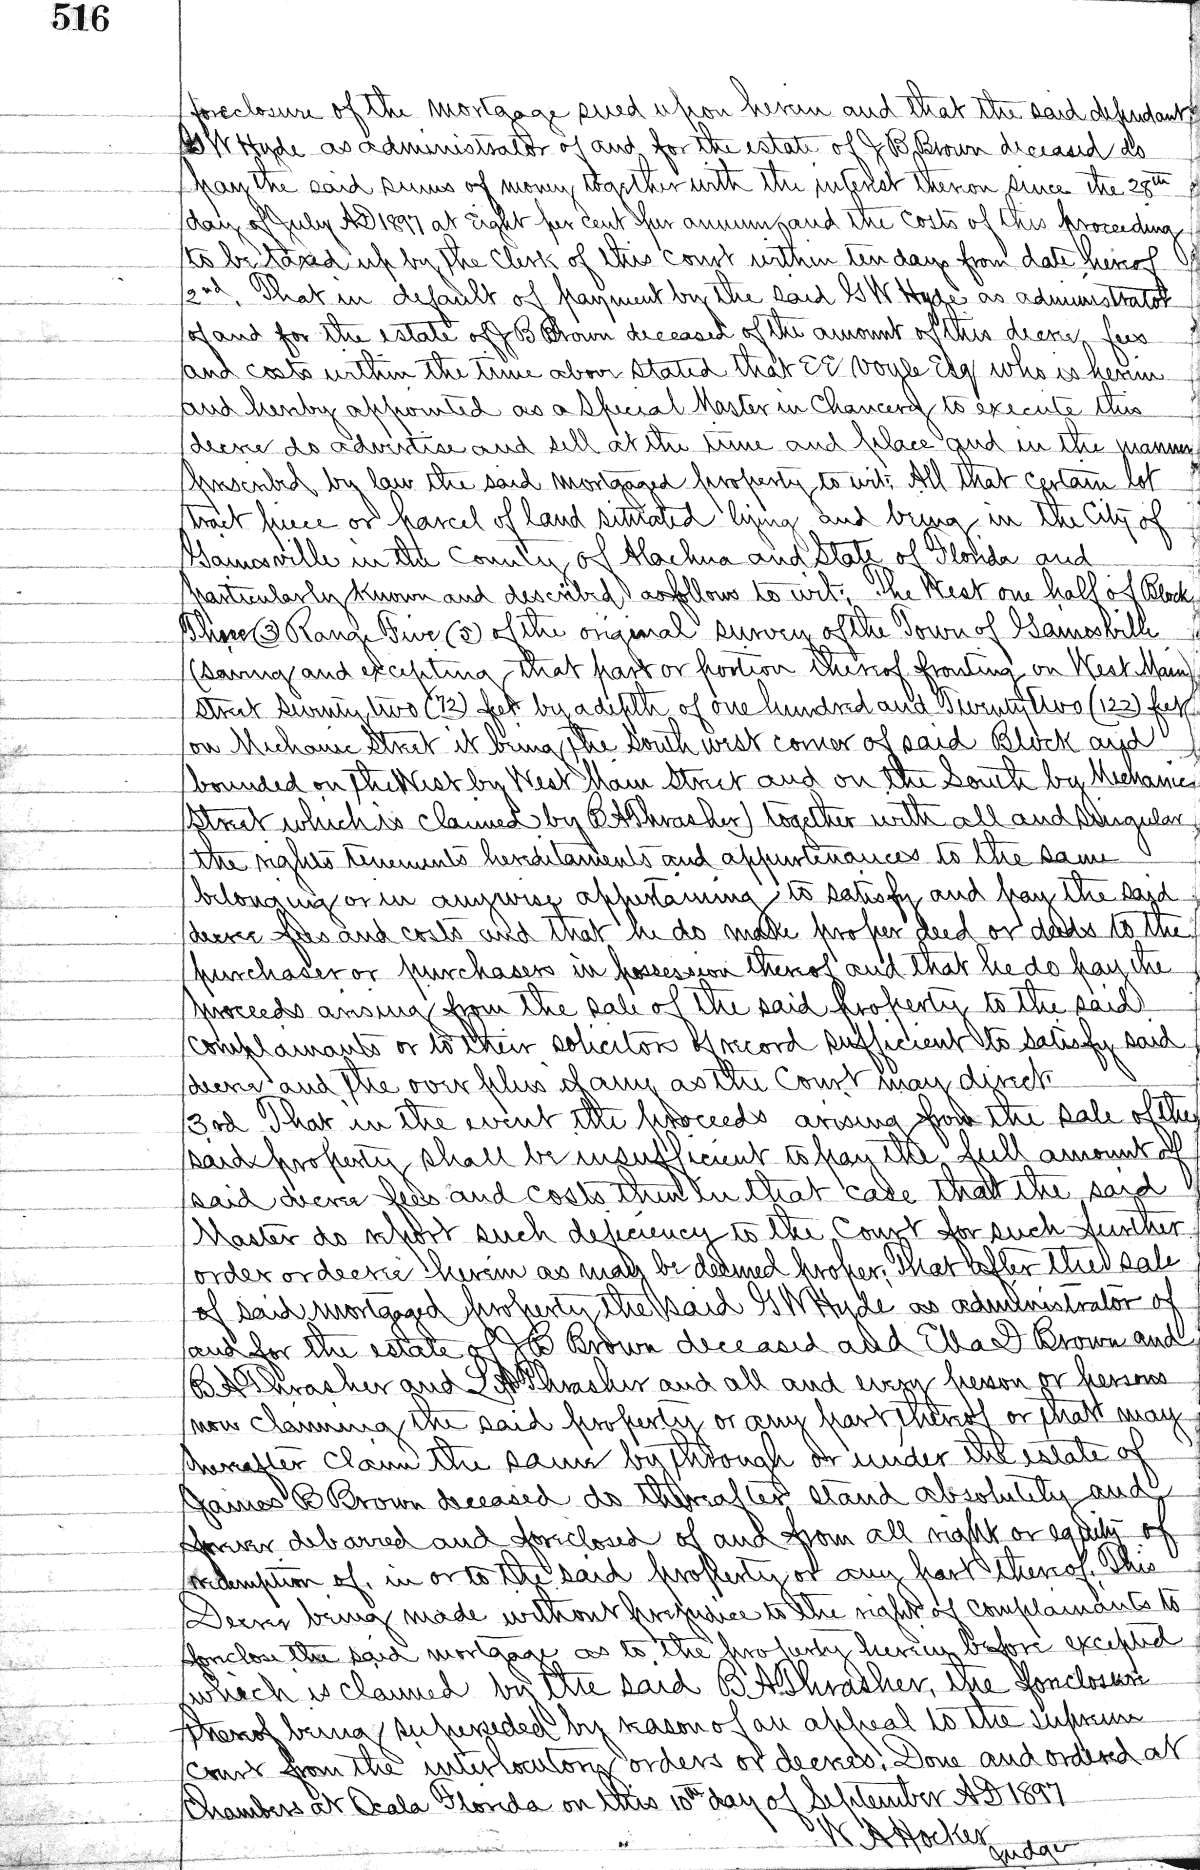 516
foreclosure of the mortgage sued upon herein and that the said defendant
G W Hyde as administrator of and for the estate of J B Brown deceased do
pay the said sums of money together with the interest thereon since the 28th
day of July AD 1897 at Eight per cent per annum and the costs of this proceeding
to be taxed up by the Clerk of this court within ten days from date hereof
2nd. That in default of payment by the said G W Hyde as administrator
of and for the estate of J B Brown deceased of the amount of this decree, fees
and costs within the time above stated that E E Voyle Esq who is herein
and hereby appointed as a Special Master in Chancery to execute this
decree do advertise and sell at the time and place and in the manner
prescribed by law the said mortgaged property to wit; All that certain lot
tract piece or parcel of land situated lying and being in the City of
Gainesville in the County of Alachua and State of Florida and
particularly known and described as follows to wit; The West one half of Block
Three (3) Range Five (5) of the original survey of the Town of Gainesville
(saving and excepting that part or portion thereof fronting on West Main
Street Seventy two (72) feet by a depth of one hundred and Twenty Two (122) feet
on Mechanic Street it being the South west corner of said Block and
bounded on the West by West Main Street and on the South by Mechanic
Street which is claimed by B A Thrasher) together with all and Singular
the rights tenements hereditaments and appurtenances to the same
belonging or in anywise appertaining to satisfy and pay the said
decree fees and costs and that he do make proper deed or deeds to the
purchaser or purchasers in possession thereof and that he do pay the
proceeds arising from the sale of the said property to the said
complainants or to their solicitors of record sufficient to satisfy said
decree and the over plus if any as the Court may direct
3rd That in the event the proceeds arising from the sale of the
said property shall be insufficient to pay the full amount of
said decree fees and costs then in that case that the said
Master do report such deficiency to the Court for such further
order or decree herein as may be deemed proper. That after the sale
of said mortgaged property the said G W Hyde as administrator of
and for the estate of J B Brown deceased and Ella D Brown and
B A Thrasher and L A Thrasher and all and every person or persons
now claiming the said property or any part thereof or that may
hereafter claim the same by through or under the estate of
James B Brown deceased do thereafter stand absolutely and
forever debarred and foreclosed of and from all right or equity of
redemption of, in or to the said property or any part thereof. This
Decree being made without prejudice to the right of complainants to
foreclose the said mortgage as to the property herein before excepted
which is claimed by the said B A Thrasher, the foreclosure
thereof being superseded by reason of an appeal to the supreme
court from the interlocutory orders or decrees. Done and ordered at
Chambers at Ocala Florida on this 10th day of September AD 1897
W A Hocker
Judge